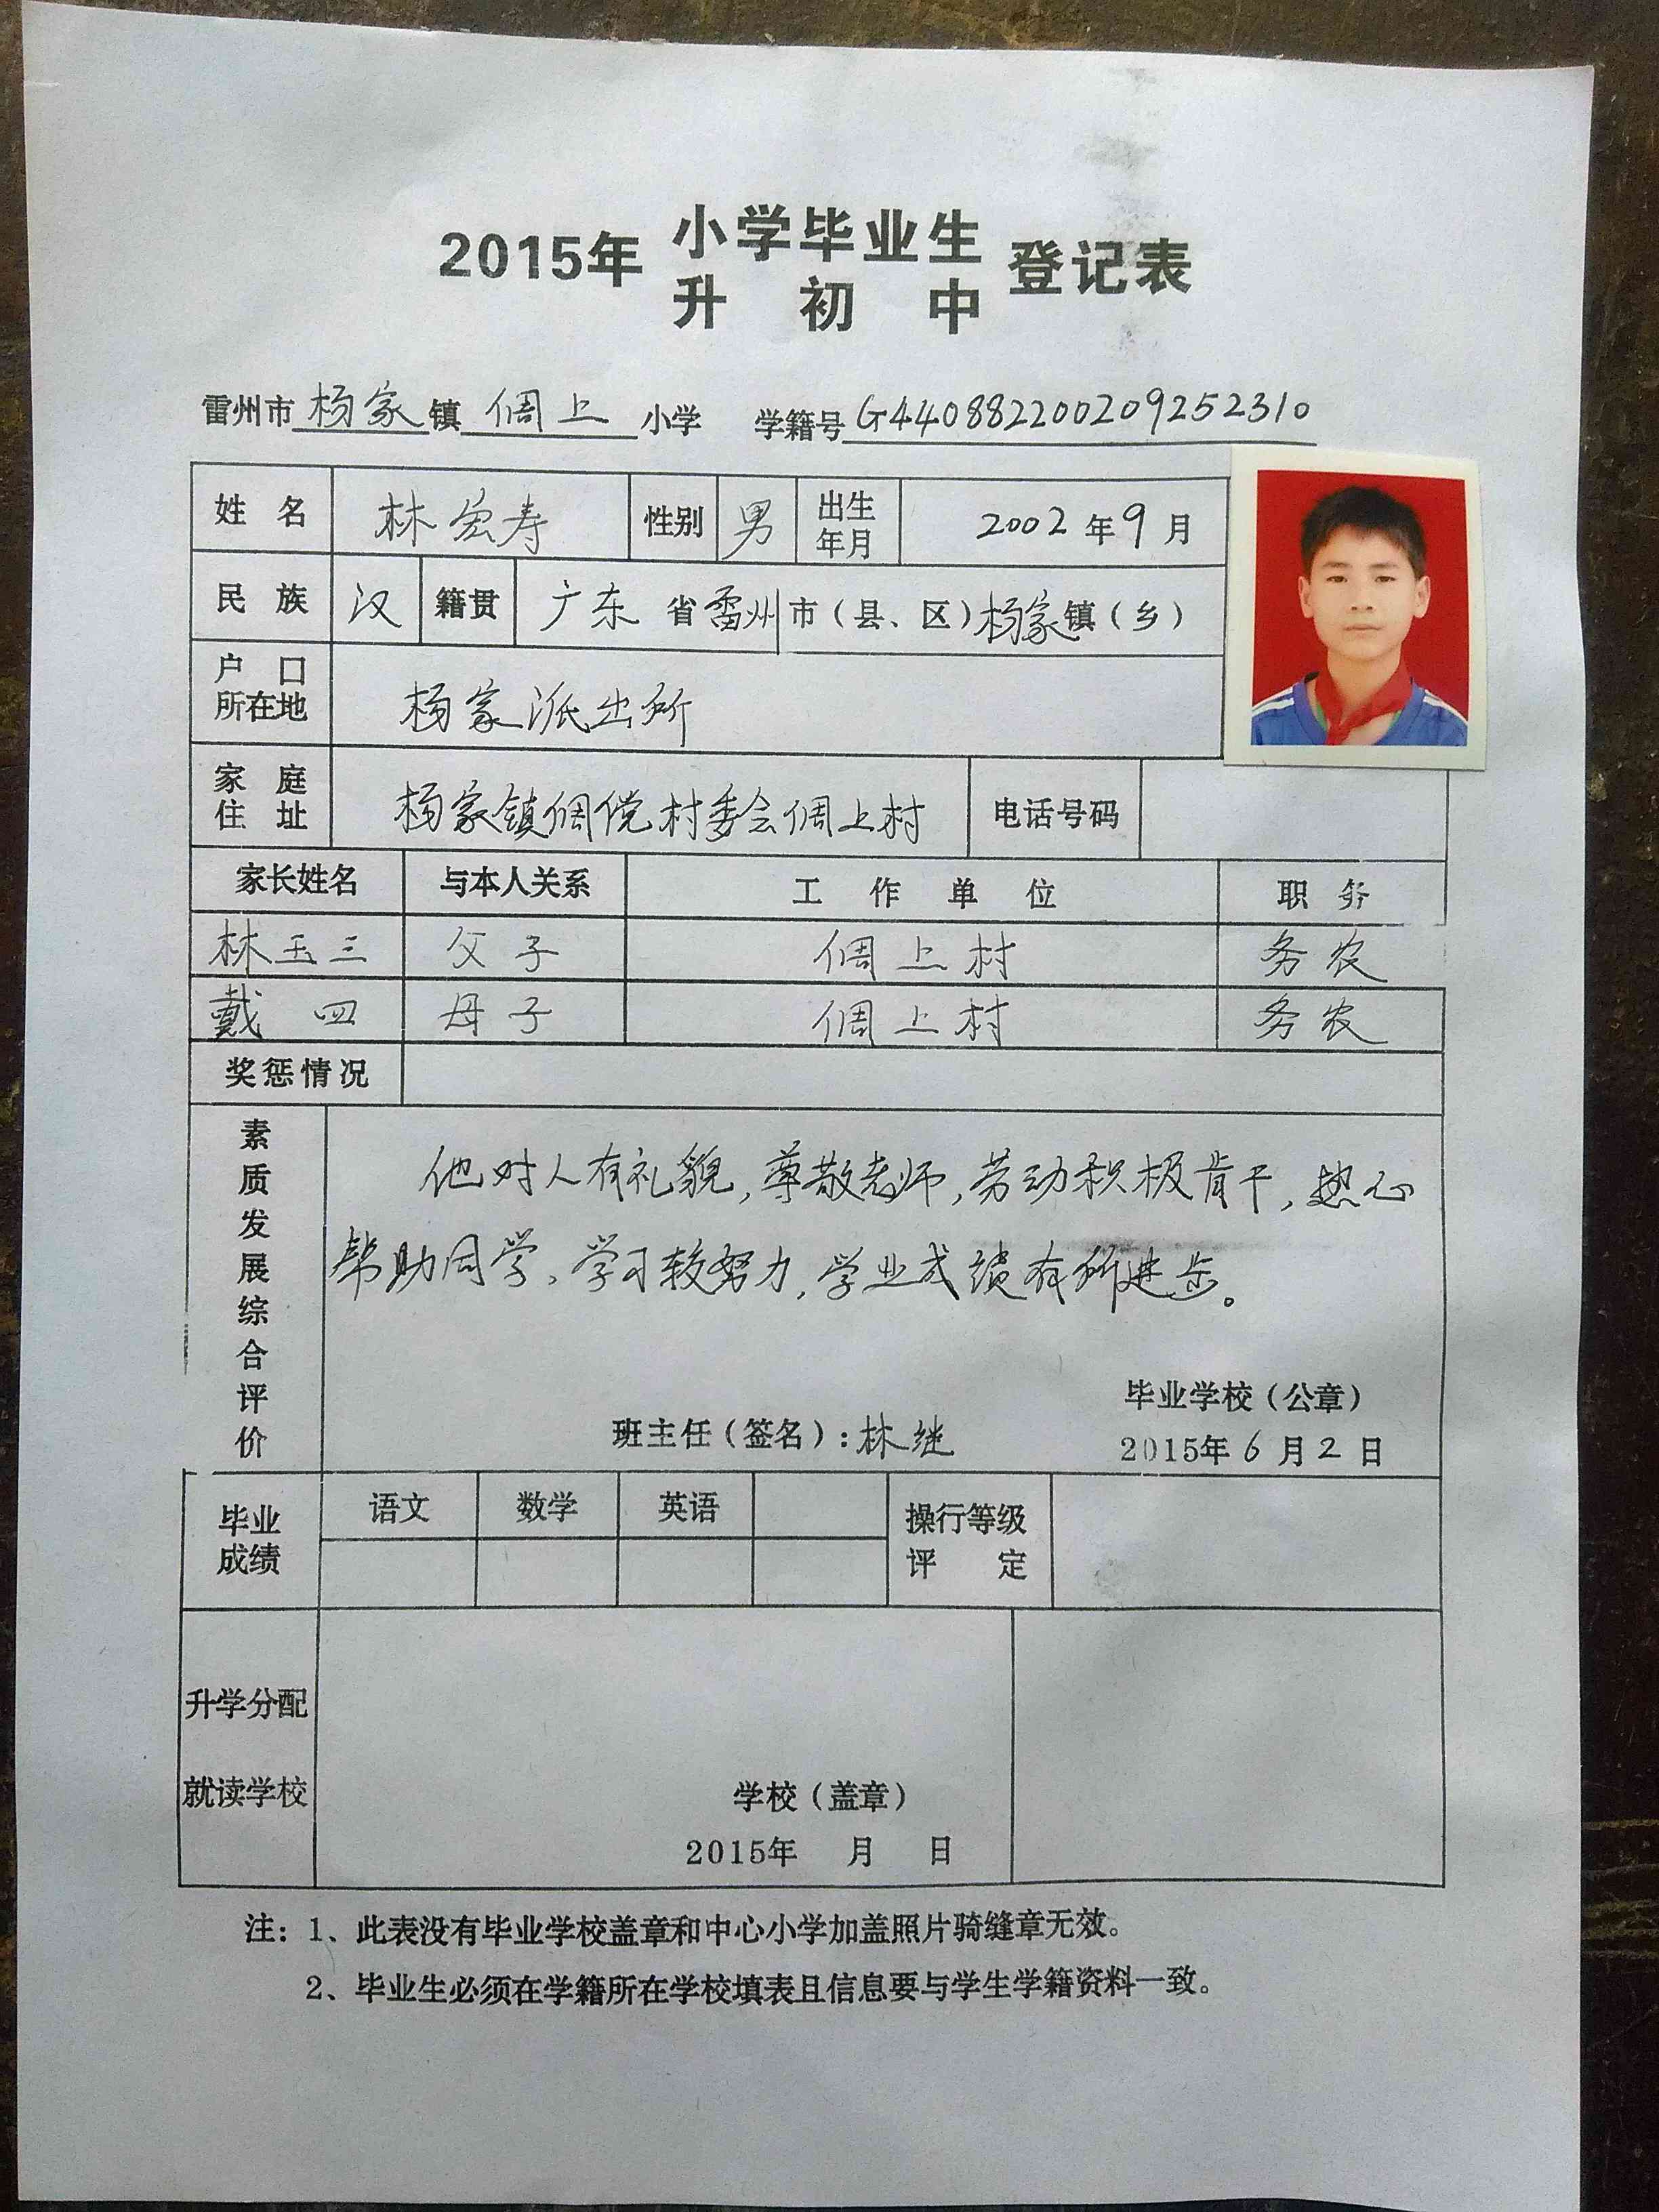 2015年 小学毕业生 登记表
升初中
雷州市杨家镇倜上小学 学籍号G440882200209252310
姓名 林宏寿 性别 男 出生年月 2002年9月
民族 汉 籍贯 广东省雷州市（县、区）杨家镇（乡）
户口所在地 杨家派出所
家庭住址 杨家镇倜傥村委会倜上村 电话号码
家长姓名 与本人关系 工作单位 职务
林玉三 父子 倜上村 务农
戴四 母子 倜上村 务农
奖惩情况
素质发展综合评价
他对人有礼貌,尊敬老师,劳动积极肯干,热心
帮助同学。学习较努力,学业成绩有所进步。
毕业学校（公章）
班主任（签名）:林继 2015年6月2日
毕业成绩 语文 数学 英语 操行等级评定
升学分配
就读学校 学校（盖章）
2015年 月 日
注：1、此表没有毕业学校盖章和中心小学加盖照片骑缝章无效。
2、毕业生必须在学籍所在学校填表且信息要与学生学籍资料一致。